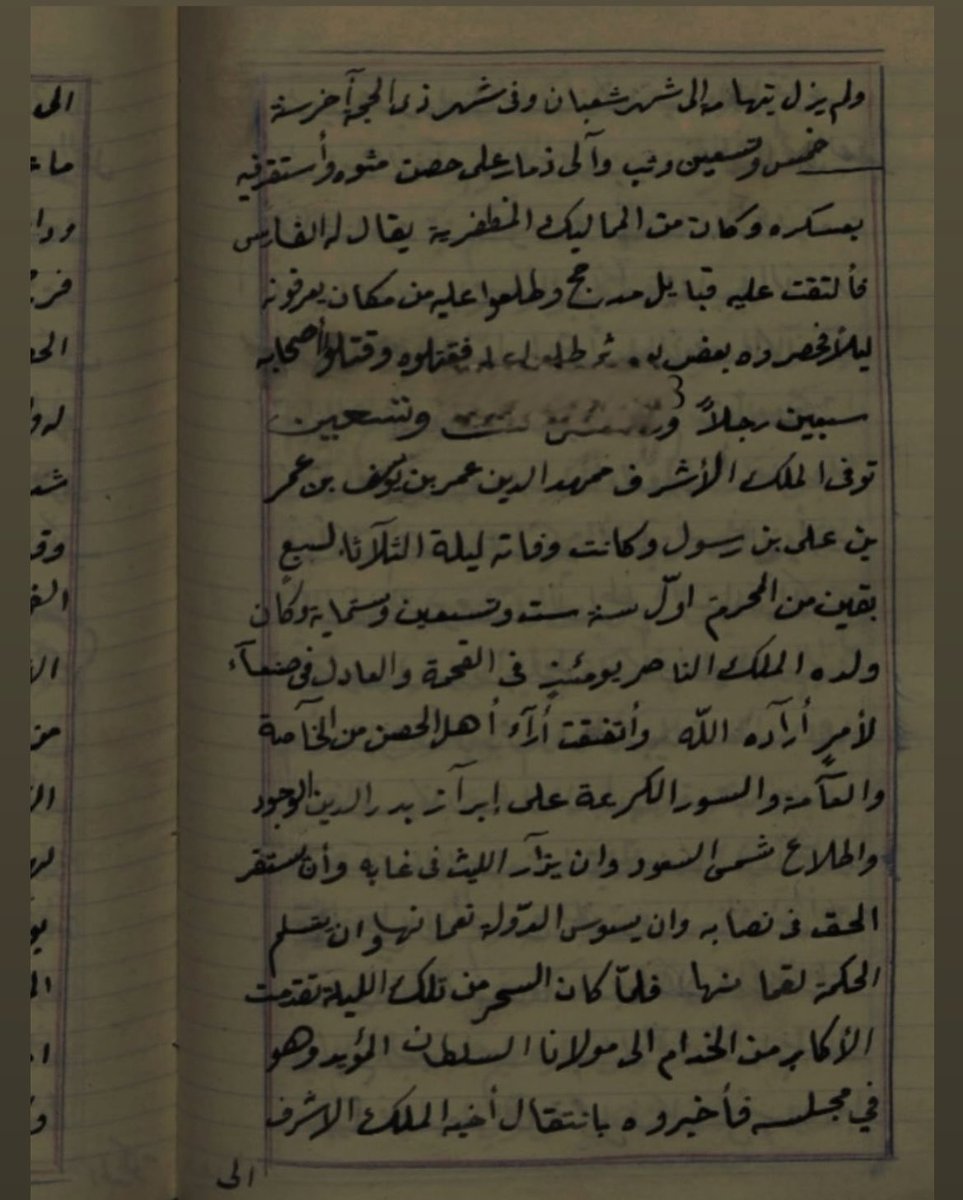 ولم يزل بتهامه الى شهر شعبان وفى شهر ذى الحجة آخر سنة
خمس وتسعين وثب وآلى ذمار على حصن مثوه وأستقر فيه
بعسكره وكان من المماليك المظفرية يقال له الفارس
فألتفت عليه قبايل مدحج وطلعوا عليه من مكان يعرفونه
ليلاً فحصروه بعض فقتلوه وقتلوا أصحابه
سبعين رجلاً وتسعين
توفى الملك الأشرف ممهد الدين عمر بن يوسف بن عمر
بن على بن رسول وكانت وفاته ليلة الثلآثاء لسبعٍ
بقين من المحرم اوّل سنة ست وتسعين وستماية وكان
ولده الملك الناصر يومئذٍ فى القحمة والعادل فى صنعآء
لأمرٍ أرآده اللّه وأتفقت أرآء أهل الحصن من الخآصة
والعآمة والسور الكريمة على إبرآز بدر الدين الوجود
واطلاع شمس السعود وان يزآر الليث فى غابه وأن يستقر
الحق فى نصابه وان يسوس الدّولة نعمانها وان يتسلم
الحكمة لقمانها فلمّا كان السحر من تلك الليلة تقدمت
الأكابر من الخدام الى مولانا السلطان المؤيد وهو
في مجلسه فأخبروه بانتقال أخيه الملك الاشرف
الى